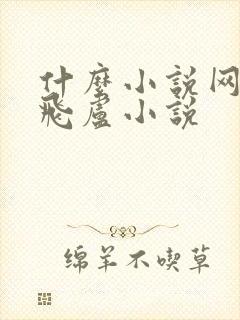 什麼小說网
飛盧小說
绵羊不喫草